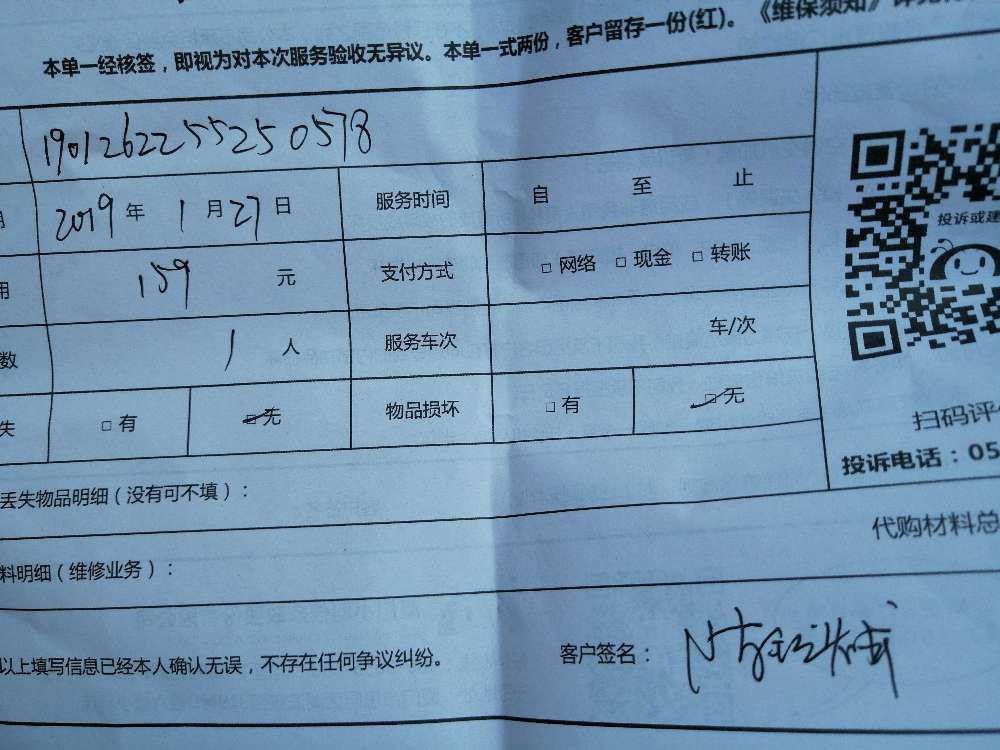 本单一经核签，即视为对本次服务验收无异议。本单一式两份，客户留存一份(红)。《维保须知》详见
190126225525057８
2019 年 1 月 27 日 服务时间 自 至 止
用 159 元 支付方式 □ 网络 □ 现金 □ 转账
数 1 人 服务车次 车/次
失 □ 有 □ 无 物品损坏 □ 有 □ 无
投诉或建
扫码评
投诉电话：05
丢失物品明细（没有可不填）：
代购材料总
料明细（维修业务）：
以上填写信息已经本人确认无误，不存在任何争议纠纷。 客户签名：